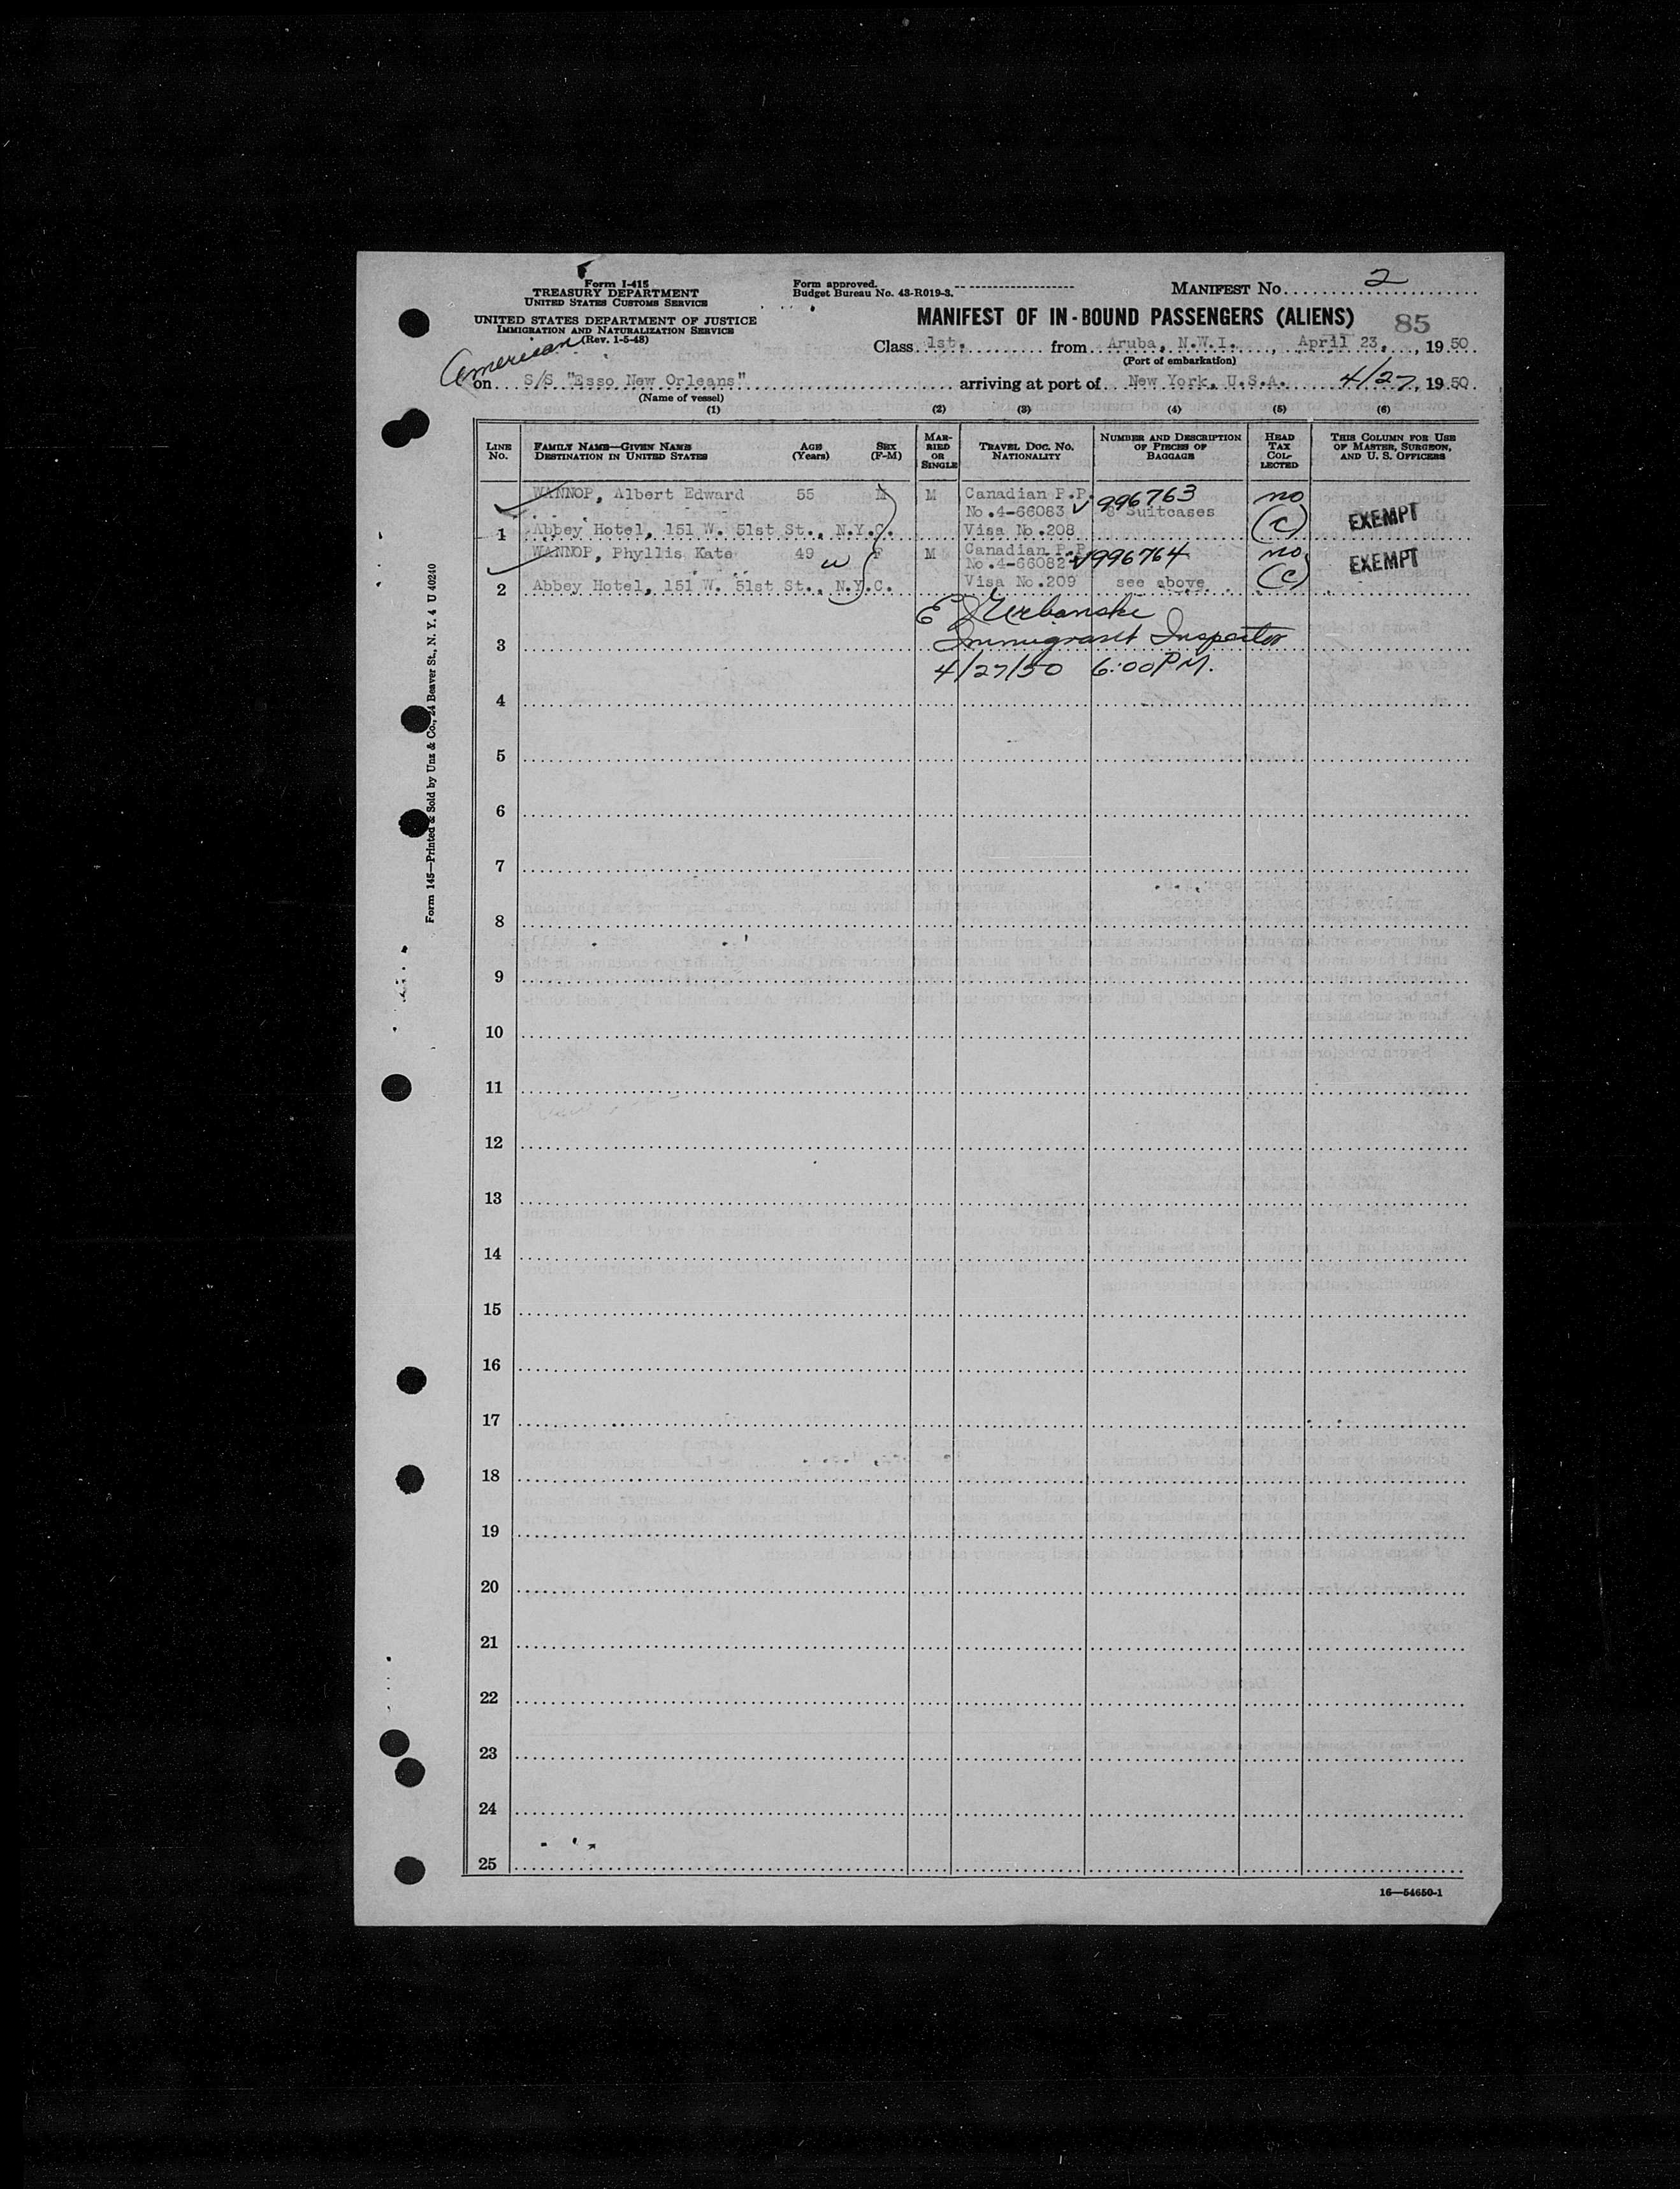 Form I-415
TREASURY DEPARTMENT
UNITED STATES CUSTOMS SERVICE
UNITED STATES DEPARTMENT OF JUSTICE
IMMIGRATION AND NATURALIZATION SERVICE
(Rev. 1-5-48)
Form approved.
Budget Bureau No. 43-R019-3.
MANIFEST No. 2
MANIFEST OF IN-BOUND PASSENGERS (ALIENS) 85
Class 1st. from Aruba, N.W.I., April 23, 1950
(Port of embarkation)
American
on S/S "Esso New Orleans" arriving at port of New York, U.S.A. 4/27, 1950
(Name of vessel)
(1) (2) (3) (4) (5) (6)
LINE No. FAMILY NAME—GIVEN NAME DESTINATION IN UNITED STATES AGE (Years) SEX (F-M) MARRIED OR SINGLE TRAVEL DOC. NO. NATIONALITY NUMBER AND DESCRIPTION OF PIECES OF BAGGAGE HEAD TAX COLLECTED THIS COLUMN FOR USE OF MASTER, SURGEON, AND U. S. OFFICERS
WANNOP, Albert Edward 55 M M Canadian P.P. 996763 no
No.4-66083 Suitcases EXEMPT
1 Abbey Hotel, 151 W. 51st St., N.Y.C. Visa No.208 (C)
WANNOP, Phyllis Kate 49 w F M Canadian P.P. 996764 no
No.4-66082 EXEMPT
2 Abbey Hotel, 151 W. 51st St., N.Y.C. Visa No.209 see above (C)
E J Urbanski
3 Immigrant Inspector
4/27/50 6:00 PM.
4
5
6
7
8
9
10
11
12
13
14
15
16
17
18
19
20
21
22
23
24
25
16—54650-1
Form 145—Printed & Sold by Unz & Co., 24 Beaver St., N. Y. 4 U 40240